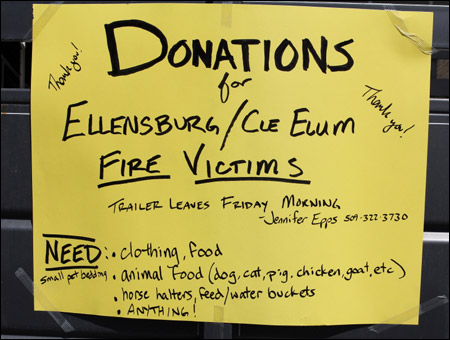 Thank you!
DONATIONS
for
Thank you!
ELLENSBURG/CLE ELUM
FIRE VICTIMS
TRAILER LEAVES FRIDAY MORNING
-Jennifer Epps 509-322-3730
NEED: • clothing, food
small pet bedding • animal food (dog, cat, pig, chicken, goat, etc)
• horse halters, feed/water buckets
• ANYTHING!